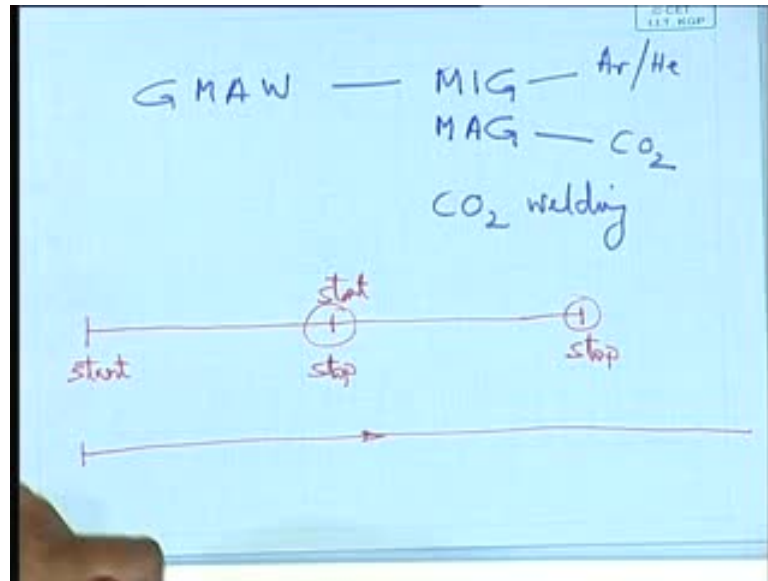 © CET
I.I.T. KGP
GMAW — MIG — Ar/He
MAG — CO₂
CO₂ welding
start
start
stop
stop